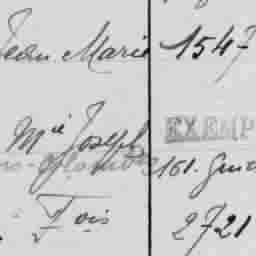 Jean Marie 1547
Mie Joseph EXEMP
161. Gui
Fois 2721